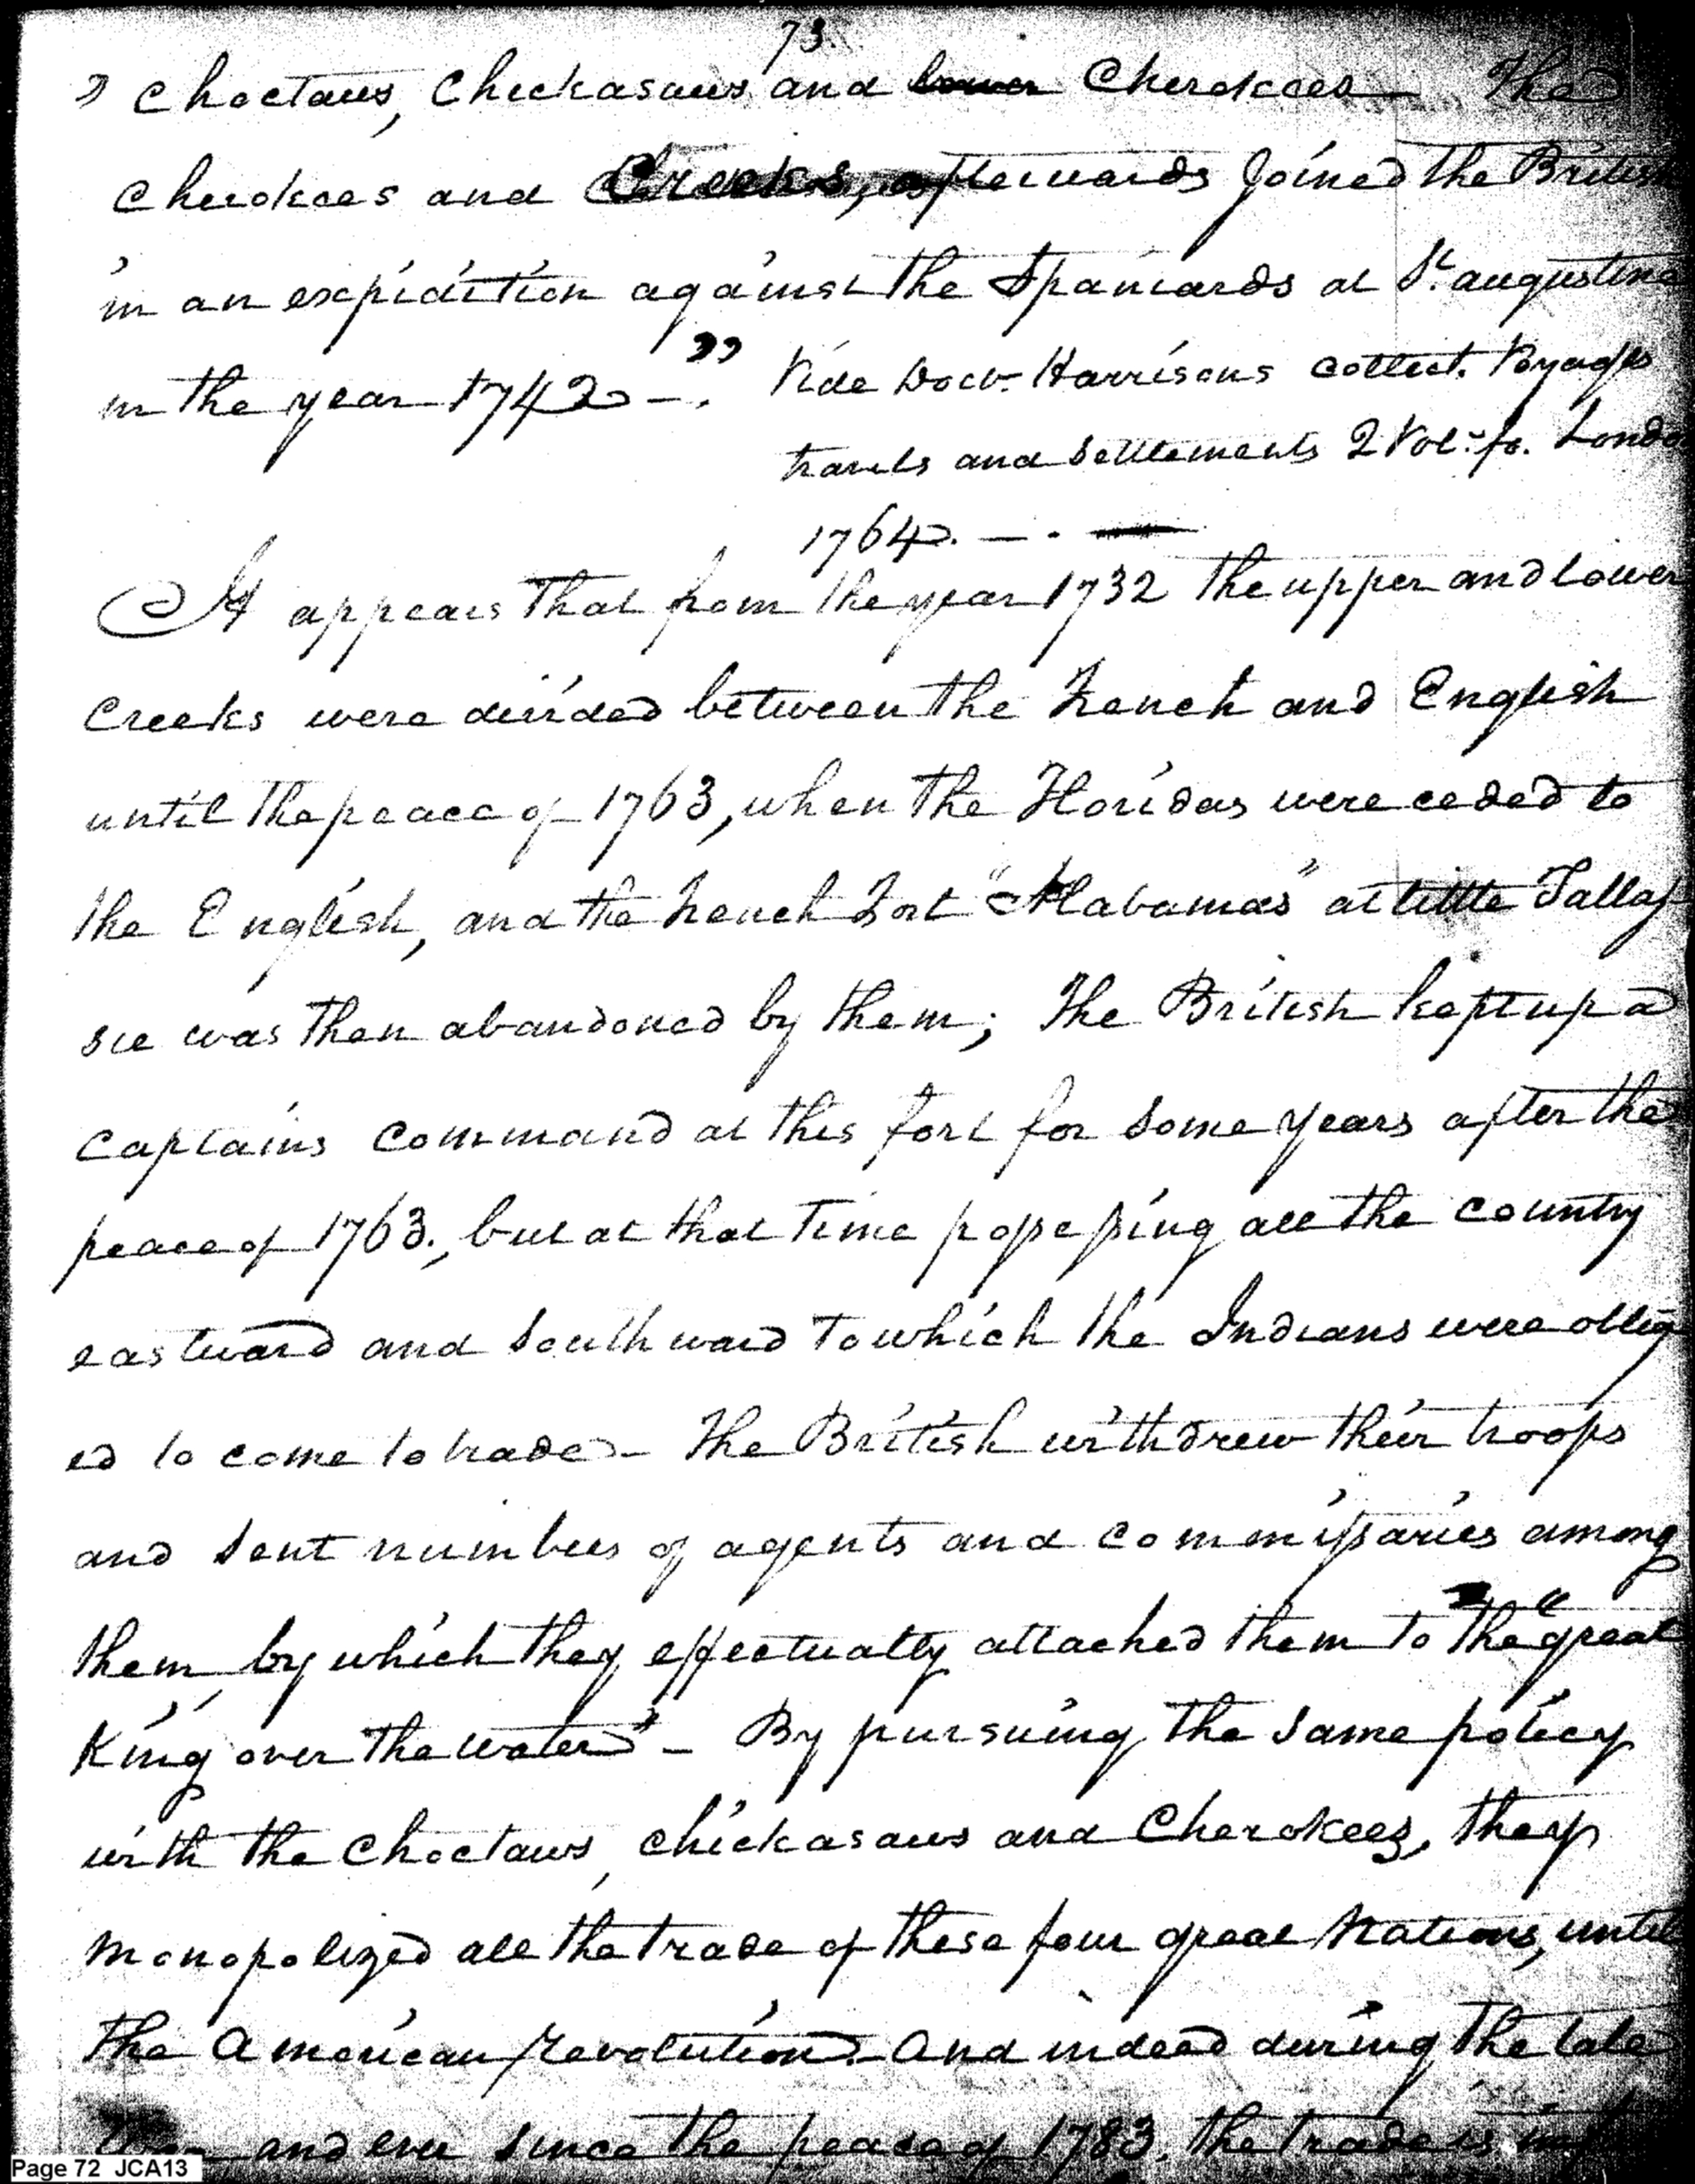 73.
" Choctaws, Chickasaws and lower Cherokees — The
Cherokees and Creeks, afterwards Joined the British
in an expidition against the Spaniards at St. augustine
in the year 1742 —. " Vide Docr. Harrisons collect. Voyages
travels and Settlements 2 Vol: fo. London
1764. — . —
It appears that from the year 1732 the upper and lower
Creeks were divided between the French and English
until the peace of 1763, when the Floridas were ceded to
the English, and the French Fort "Alabamas" at little Tallas
sie was then abandoned by them; The British kept up a
captains command at this fort for some years after the
peace of 1763., but at that time possessing all the country
eastward and Southward to which the Indians were oblig
ed to come to trade - The British withdrew their troops
and sent numbers of agents and commissaries among
them by which they effectually attached them to the "great
King over the water" - By pursuing the same policy
with the Choctaws, Chickasaws and Cherokees, they
monopolized all the trade of these four great Nations, until
the american revolution. - and indeed during the late
War and ever since the peace of 1783, the trade is
Page 72 JCA13